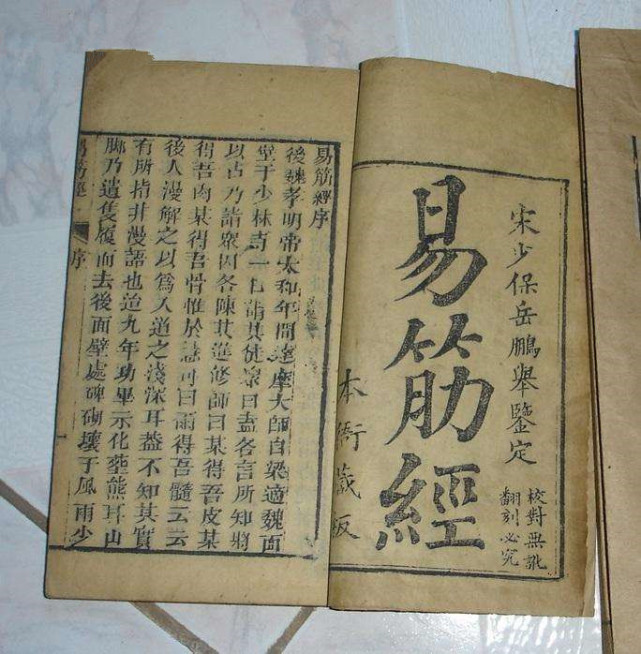 宋少保岳鵬舉鑒定
校對無訛
翻刻必究
易筋經
本衙藏板
易筋經序
後魏孝明帝太和年間達摩大師自梁適魏面
壁于少林寺一日謂其徒衆曰盍各言所知將
以占乃詣衆因各陳其進修師曰某得吾皮某
得吾肉某得吾骨惟於慧可曰爾得吾髓云云
後人漫解之以為入道之淺深耳葢不知其實
有所指非漫語也迨九年功畢示化塟熊耳山
脚乃遺隻履而去後面壁處碑砌壞于風雨少
易筋經 序